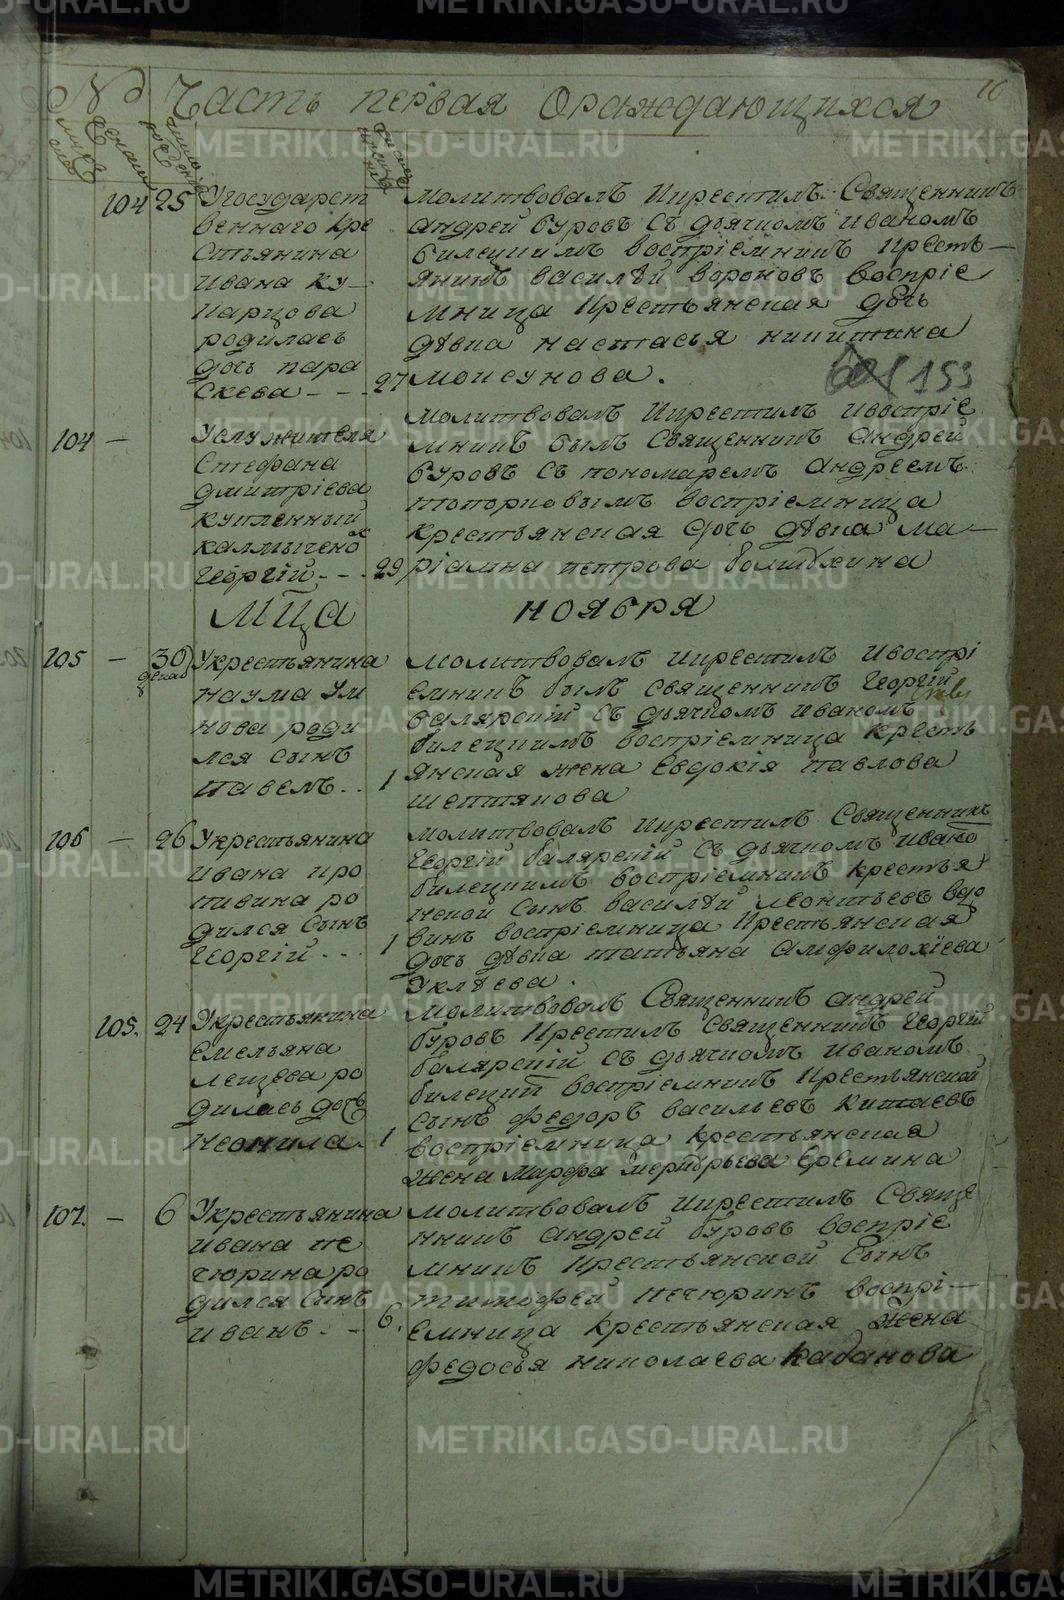 № Часть первая ораждающихся
16
104 25 Угосударст
веннаго кре
стьянина
ивана ку
карцова
родилась
дочь пара
скева - - - 27
молитвовалъ икрестилъ священникъ
андрей буровъ съ дьячкомъ иваномъ
билецкимъ воспріемникъ кресть
янинъ василій вороновъ воспріе
мница крестьянская дочь
дѣвка настасья никитина
моисунова.
153
104 — Услужителя
стефана
дмитріева
купленный
калмыченокъ
георгій - - - 29
молитвовалъ икрестилъ ивоспріе
мникъ былъ священникъ андрей
буровъ съ пономаремъ андреемъ
топорковымъ воспріемница
крестьянская дочь дѣвка ма
ріамна петрова
мца ноября
105 — 30 Укрестьянина
наума ум
нова роди
лся сынъ
павелъ . . 1
молитвовалъ икрестилъ ивоспрі
емникъ былъ священникъ георгій
балярскій съ дьячкомъ иваномъ
билецкимъ воспріемница кресть
янская жена евдокія павлова
шептякова
106 — 26 Укрестьянина
ивана про
пивина ро
дился сынъ
георгій . . . 1
молитвовалъ икрестилъ священникъ
георгій балярскій съ дьячкомъ ивано
билецкимъ воспріемникъ крестья
нской сынъ василій леонтьевъ вдо
винъ воспріемница крестьянская
дочь дѣвка татьяна амфилохіева
уклѣева.
105. 24 Укрестьянина
емельяна
лещева ро
дилась дочь
неонила. 1
молитвовалъ священникъ андрей
буровъ крестилъ священникъ георгій
балярскій съ дьячкомъ иваномъ
билецкий воспріемникъ крестьянской
сынъ федоръ васильевъ китаевъ
воспріемница крестьянская
жена марфа еремина
107. — 6 Укрестьянина
ивана пе
чюрина ро
дился сынъ
иванъ. - 6.
молитвовалъ икрестилъ свяще
нникъ андрей буровъ воспріе
мникъ крестьянской сынъ
тимофей печюринъ воспрі
емница крестьянская жена
федосья николаева кабанова
METRIKI.GASO-URAL.RU